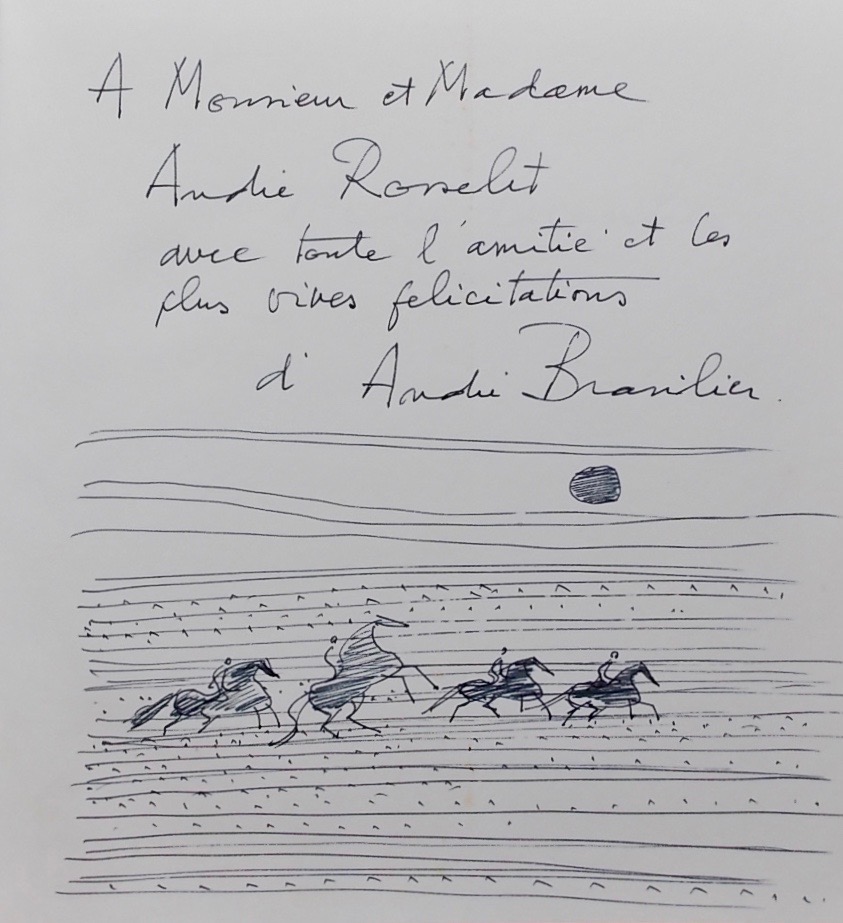 A Monsieur et Madame
André Rosselet
avec toute l'amitié et les
plus vives felicitations
d' André Brasilier.